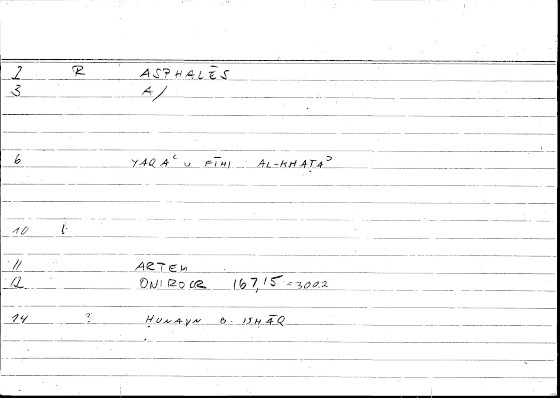 2 R ASPHALĒS
3 A/
6 YAQAʿU FĪHI AL-KHAṬAʾ
10
11 ARTEM
12 ONIROCR 167,15 = 3002
14 ? ḤUNAYN B. ISḤĀQ